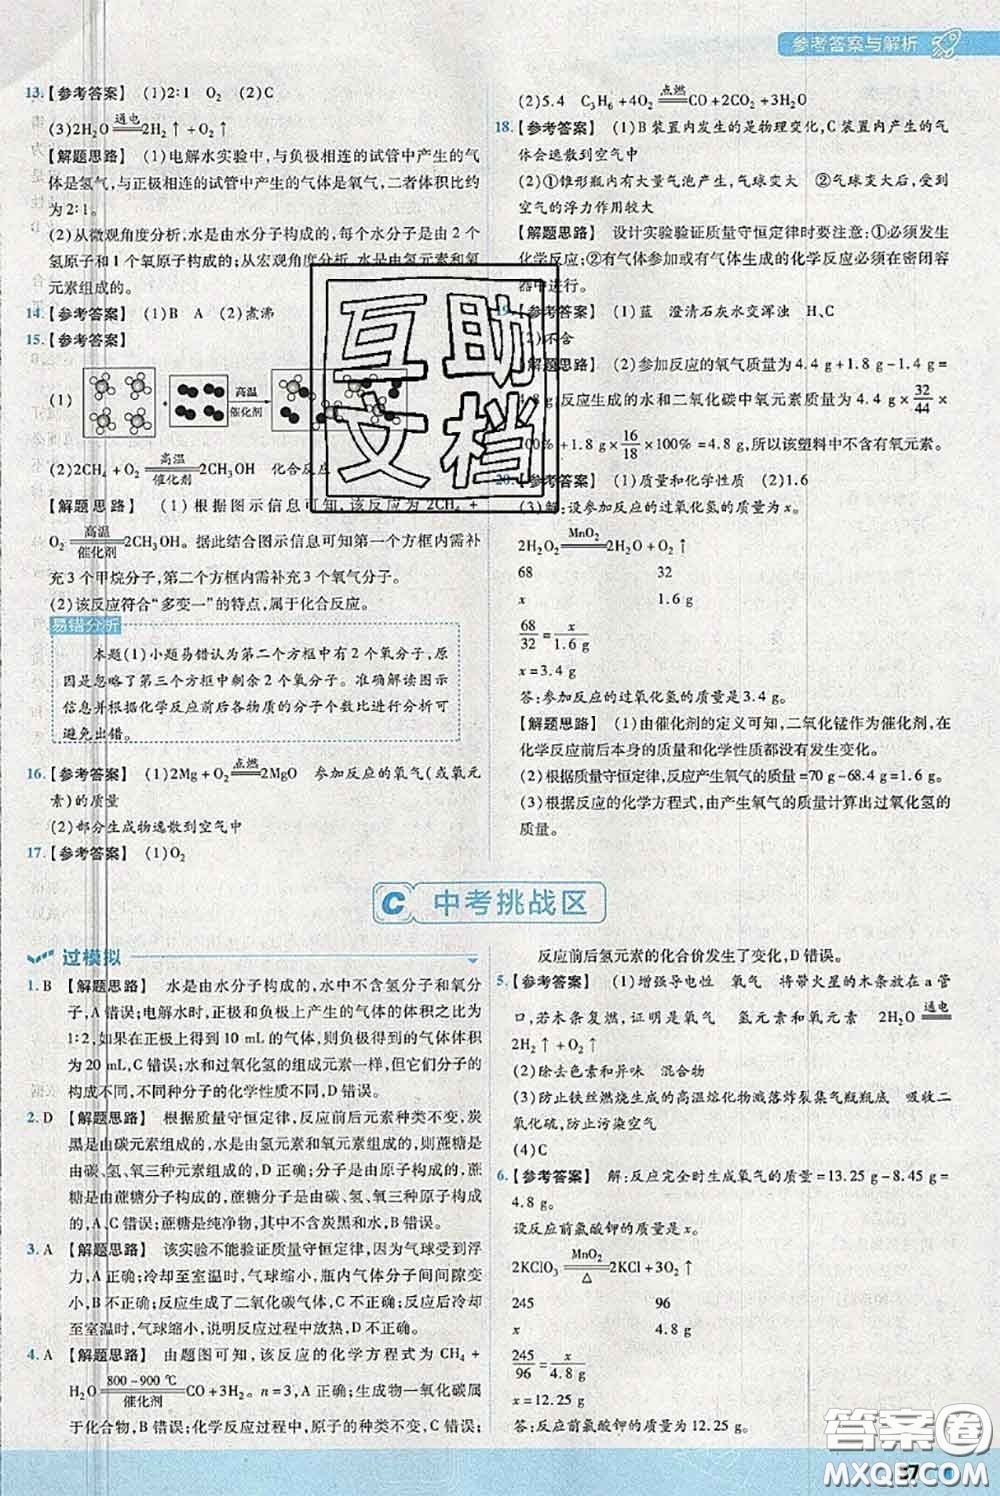 参考答案与解析
13.【参考答案】 (1)2∶1 O2 (2)C
(3)2H2O 通电 2H2↑+O2↑
【解题思路】 (1)电解水实验中,与负极相连的试管中产生的气
体是氢气,与正极相连的试管中产生的气体是氧气,二者体积比约
为2∶1。
(2)从微观角度分析,水是由水分子构成的,每个水分子由2个
氢原子和1个氧原子构成的;从宏观角度分析,水是由氢元素和氧
元素组成的。
14.【参考答案】 (1)B A (2)煮沸
15.【参考答案】
(1) 高温 催化剂
(2)2CH4+O2 高温 催化剂 2CH3OH 化合反应
【解题思路】 (1)根据图示信息可知,该反应为2CH4+
O2 高温 催化剂 2CH3OH。据此结合图示信息可知第一个方框内需补
充3个甲烷分子,第二个方框内需补充3个氧气分子。
(2)该反应符合“多变一”的特点,属于化合反应。
易错分析
本题(1)小题易错认为第二个方框中有2个氧分子,原
因是忽略了第三个方框中剩余2个氧分子。准确解读图示
信息并根据化学反应前后各物质的分子个数比进行分析可
避免出错。
16.【参考答案】 (1)2Mg+O2 点燃 2MgO 参加反应的氧气(或氧元
素)的质量
(2)部分生成物逸散到空气中
17.【参考答案】 (1)O2
(2)5.4 C3H6+4O2 点燃 CO+2CO2+3H2O
18.【参考答案】 (1)B装置内发生的是物理变化,C装置内产生的气
体会逸散到空气中
(2)①锥形瓶内有大量气泡产生,气球变大 ②气球变大后,受到
空气的浮力作用较大
【解题思路】 设计实验验证质量守恒定律时要注意:①必须发生
化学反应;②有气体参加或有气体生成的化学反应必须在密闭容
器中进行。
19.【参考答案】 (1)蓝 澄清石灰水变浑浊 H、C
(2)不含
【解题思路】 (2)参加反应的氧气质量为4.4 g+1.8 g-1.4 g=
4.8 g,反应生成的水和二氧化碳中氧元素质量为4.4 g×32/44×
100%+1.8 g×16/18×100%=4.8 g,所以该塑料中不含有氧元素。
20.【参考答案】 (1)质量和化学性质 (2)1.6
(3)解:设参加反应的过氧化氢的质量为x。
2H2O2 MnO2 2H2O+O2↑
68 32
x 1.6 g
68/32=x/1.6 g
x=3.4 g
答:参加反应的过氧化氢的质量是3.4 g。
【解题思路】 (1)由催化剂的定义可知,二氧化锰作为催化剂,在
化学反应前后本身的质量和化学性质都没有发生变化。
(2)根据质量守恒定律,反应产生氧气的质量=70 g-68.4 g=1.6 g。
(3)根据反应的化学方程式,由产生氧气的质量计算出过氧化氢的
质量。
互助
文档
C 中考挑战区
过模拟
1. B 【解题思路】 水是由水分子构成的,水中不含氢分子和氧分
子,A错误;电解水时,正极和负极上产生的气体的体积之比为
1∶2,如果在正极上得到10 mL的气体,则负极得到的气体体积
为20 mL,C错误;水和过氧化氢的组成元素一样,但它们分子的
构成不同,不同种分子的化学性质不同,D错误。
2. D 【解题思路】 根据质量守恒定律,反应前后元素种类不变,炭
黑是由碳元素组成的,水是由氢元素和氧元素组成的,则蔗糖是
由碳、氢、氧三种元素组成的,D正确;蔗糖是由蔗糖分子构成的,蔗
糖是由蔗糖分子构成的,蔗糖分子是由碳、氢、氧三种原子构成
的,A、C错误;蔗糖是纯净物,其中不含炭黑和水,B错误。
3. A 【解题思路】 该实验不能验证质量守恒定律,因为气球受到浮
力,A正确;冷却至室温时,气球缩小,瓶内气体分子间间隙变
小,B正确;反应生成了二氧化碳气体,C不正确;反应后冷却
至室温时,气球缩小,说明反应过程中放热,D不正确。
4. A 【解题思路】 由题图可知,该反应的化学方程式为CH4+
H2O 800-900℃ 催化剂 CO+3H2。n=3,A正确;一氧化碳属
于化合物,B错误;化学反应过程中,原子的种类不变,C错误;
反应前后氢元素的化合价发生了变化,D错误。
5.【参考答案】 (1)增强导电性 氧气 将带火星的木条放在a管
口,若木条复燃,证明是氧气 氢元素和氧元素 2H2O 通电
2H2↑+O2↑
(2)除去色素和异味 混合物
(3)防止铁丝燃烧生成的高温熔化物溅落炸裂集气瓶瓶底 吸收二
氧化硫,防止污染空气
(4)C
6.【参考答案】 解:反应完全时生成氧气的质量=13.25 g-8.45 g=
4.8 g。
设反应前氯酸钾的质量是x。
2KClO3 MnO2 △ 2KCl+3O2↑
245 96
x 4.8 g
245/96=x/4.8 g
x=12.25 g
答:反应前氯酸钾的质量为12.25 g。
答案圈
MXQE.COM